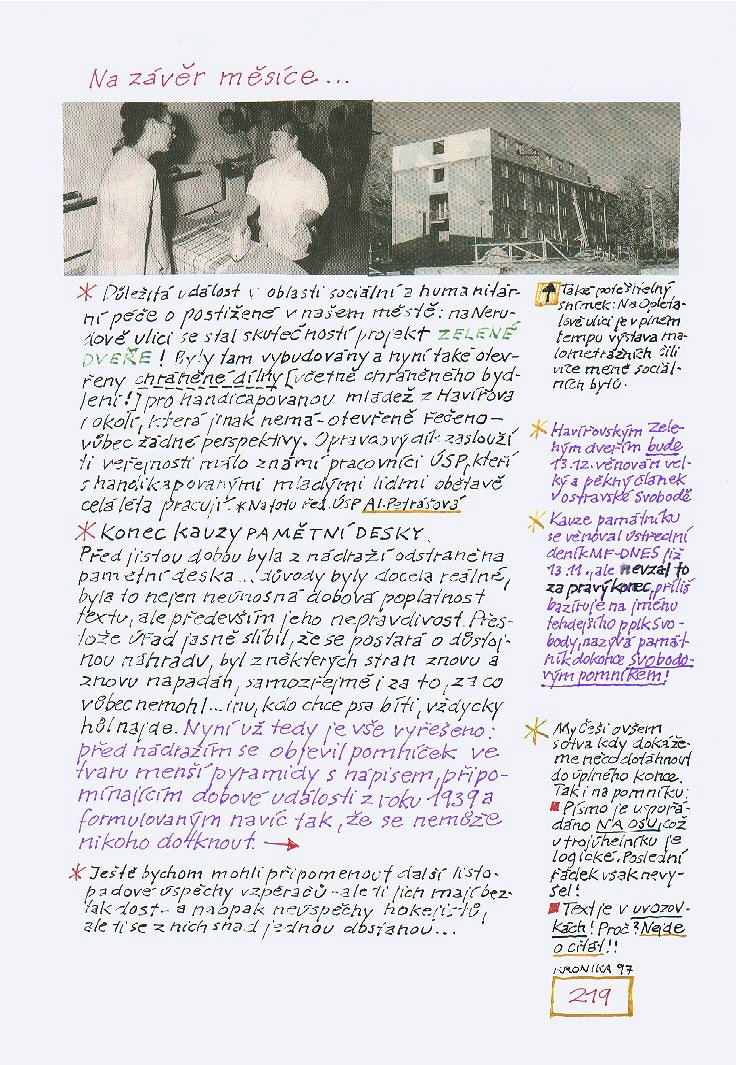 Na závěr měsíce...
* Důležitá událost v oblasti sociální a humanitár-
ní péče o postižené v našem městě: na Neru-
dově ulici se stal skutečností projekt ZELENÉ
DVEŘE! Byly tam vybudovány a nyní také otev-
řeny chráněné dílny [včetně chráněného byd-
lení!] pro handicapovanou mládež z Havířova
i okolí, která jinak nemá-otevřeně řečeno-
vůbec žádné perspektivy. Opravdový dík zaslouží
ti veřejnosti málo známí pracovníci ÚSP, kteří
s handikapovanými mladými lidmi obětavě
celá léta pracují. * Na foto řed. ÚSP Al. Petrášová
* Konec kauzy PAMĚTNÍ DESKY.
Před jistou dobou byla z nádraží odstraněna
pamětní deska... důvody byly docela reálné,
byla to nejen neúnosná dobová poplatnost
textu, ale především jeho nepravdivost. Přes-
tože úřad jasně slíbil, že se postará o důstoj-
nou náhradu, byl z některých stran znovu a
znovu napadán, samozřejmě i za to, za co
vůbec nemohl... inu, kdo chce psa bíti, vždycky
hůl najde. Nyní už tedy je vše vyřešeno:
před nádražím se objevil pomníček ve
tvaru menší pyramidy s nápisem, připo-
mínajícím dobové události z roku 1939 a
formulovaným navíc tak, že se nemůže
nikoho dotknout →
* Ještě bychom mohli připomenout další listo-
padové úspěchy vzpěračů - ale ti jich mají bez-
tak dost - a naopak neúspěchy hokejistů,
ale ti se z nich snad jednou dostanou...
↑ Také potěšitelný
snímek: Na Opleta-
lově ulici je v plném
tempu výstava ma-
lometrážních čili
více méně sociál-
ních bytů.
* Havířovským Zele-
ným dveřím bude
13.12. věnován vel-
ký a pěkný článek
v ostravské Svobodě
* Kauze památníku
se věnoval ústřední
deník MF-DNES již
13.11., ale nevzal to
za pravý konec, příliš
bazíruje na jménu
tehdejšího pplk. Svo-
body, nazývá památ-
ník dokonce Svobodo-
vým pomníkem!
* My Češi ovšem
sotva kdy dokáže-
me něco dotáhnout
do úplného konce.
Tak i na pomníku:
■ Písmo je uspořá-
dáno NA OSU, což
u trojúhelníku je
logické. Poslední
řádek však nevy-
šel!
■ Text je v uvozov-
kách! Proč? Nejde
o citát!!
KRONIKA 97
219